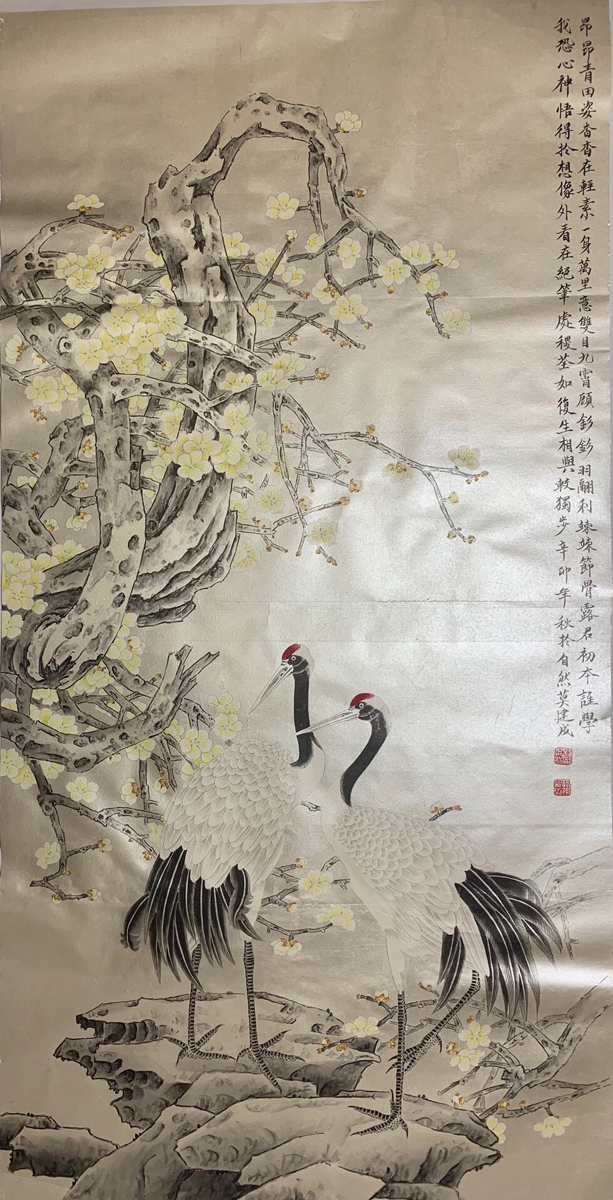 昂昂青田姿杳杳在輕素一身萬里意雙目九霄顧鈙鈙羽翮利竦竦節骨露君初本誰學
我恐心神悟得於想像外看在絕筆處稷荃如復生相與較獨步辛卯年秋於自然莫建成